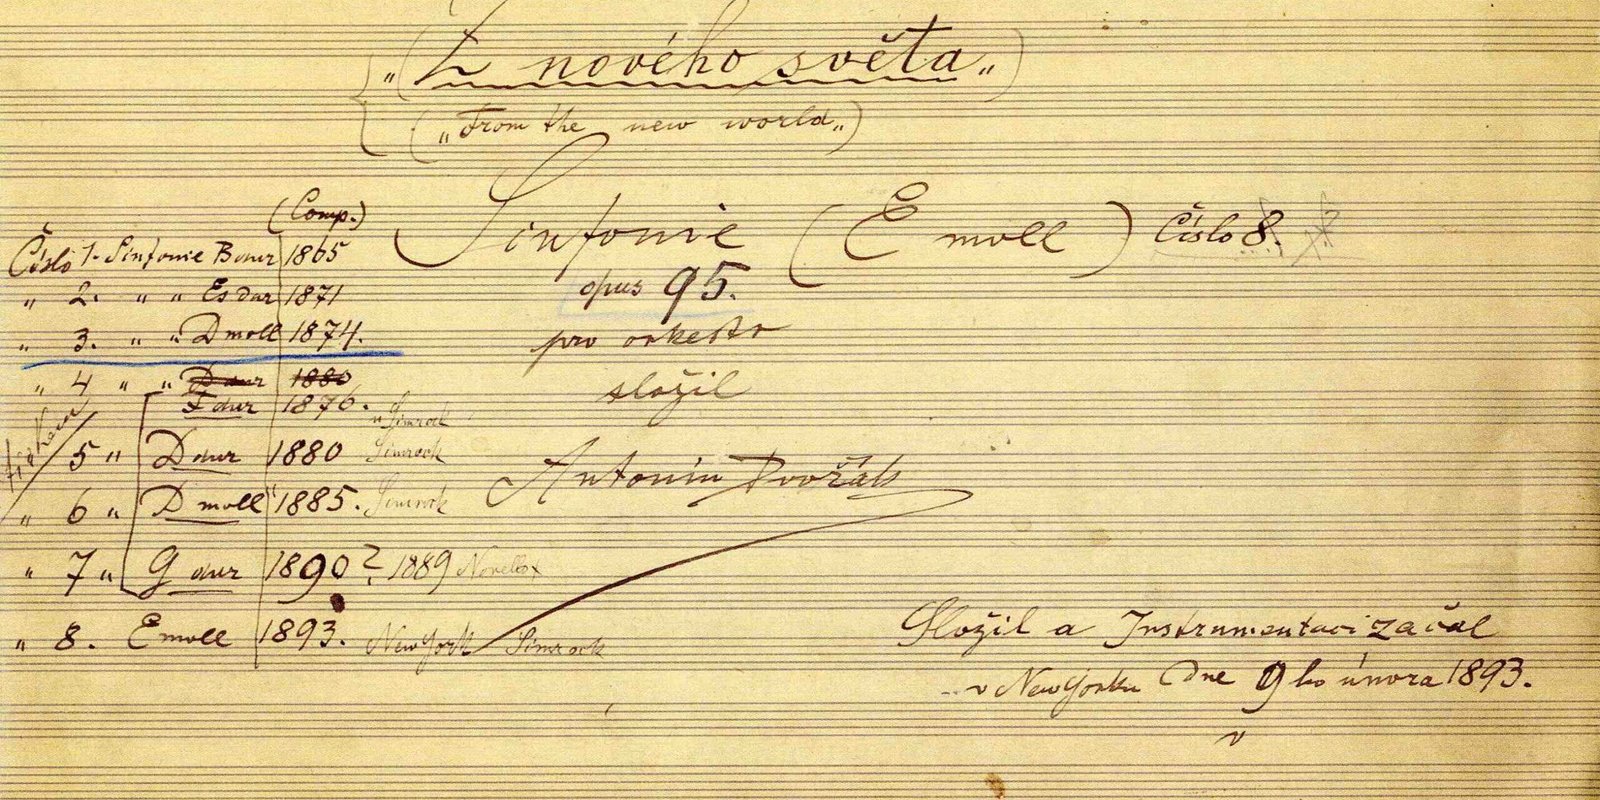 „(Z nového světa„)
(„From the new world„)
Sinfonie (E moll) Číslo 8.
opus 95.
pro orkestr
složil
Antonín Dvořák
(Comp.)
Číslo 1. Sinfonie B dur 1865
„ 2. „ „ Es dur 1871
„ 3. „ „ D moll 1874.
„ 4 „ „ D dur 1880
F dur 1876. Simrock
5 „ D dur 1880 Simrock
„ 6 „ D moll 1885. Simrock
„ 7 „ G dur 1890? 1889 Novello
„ 8. E moll 1893. New York Simrock
Složil a Instrumentaci začal
v New Yorku dne 9ho února 1893.